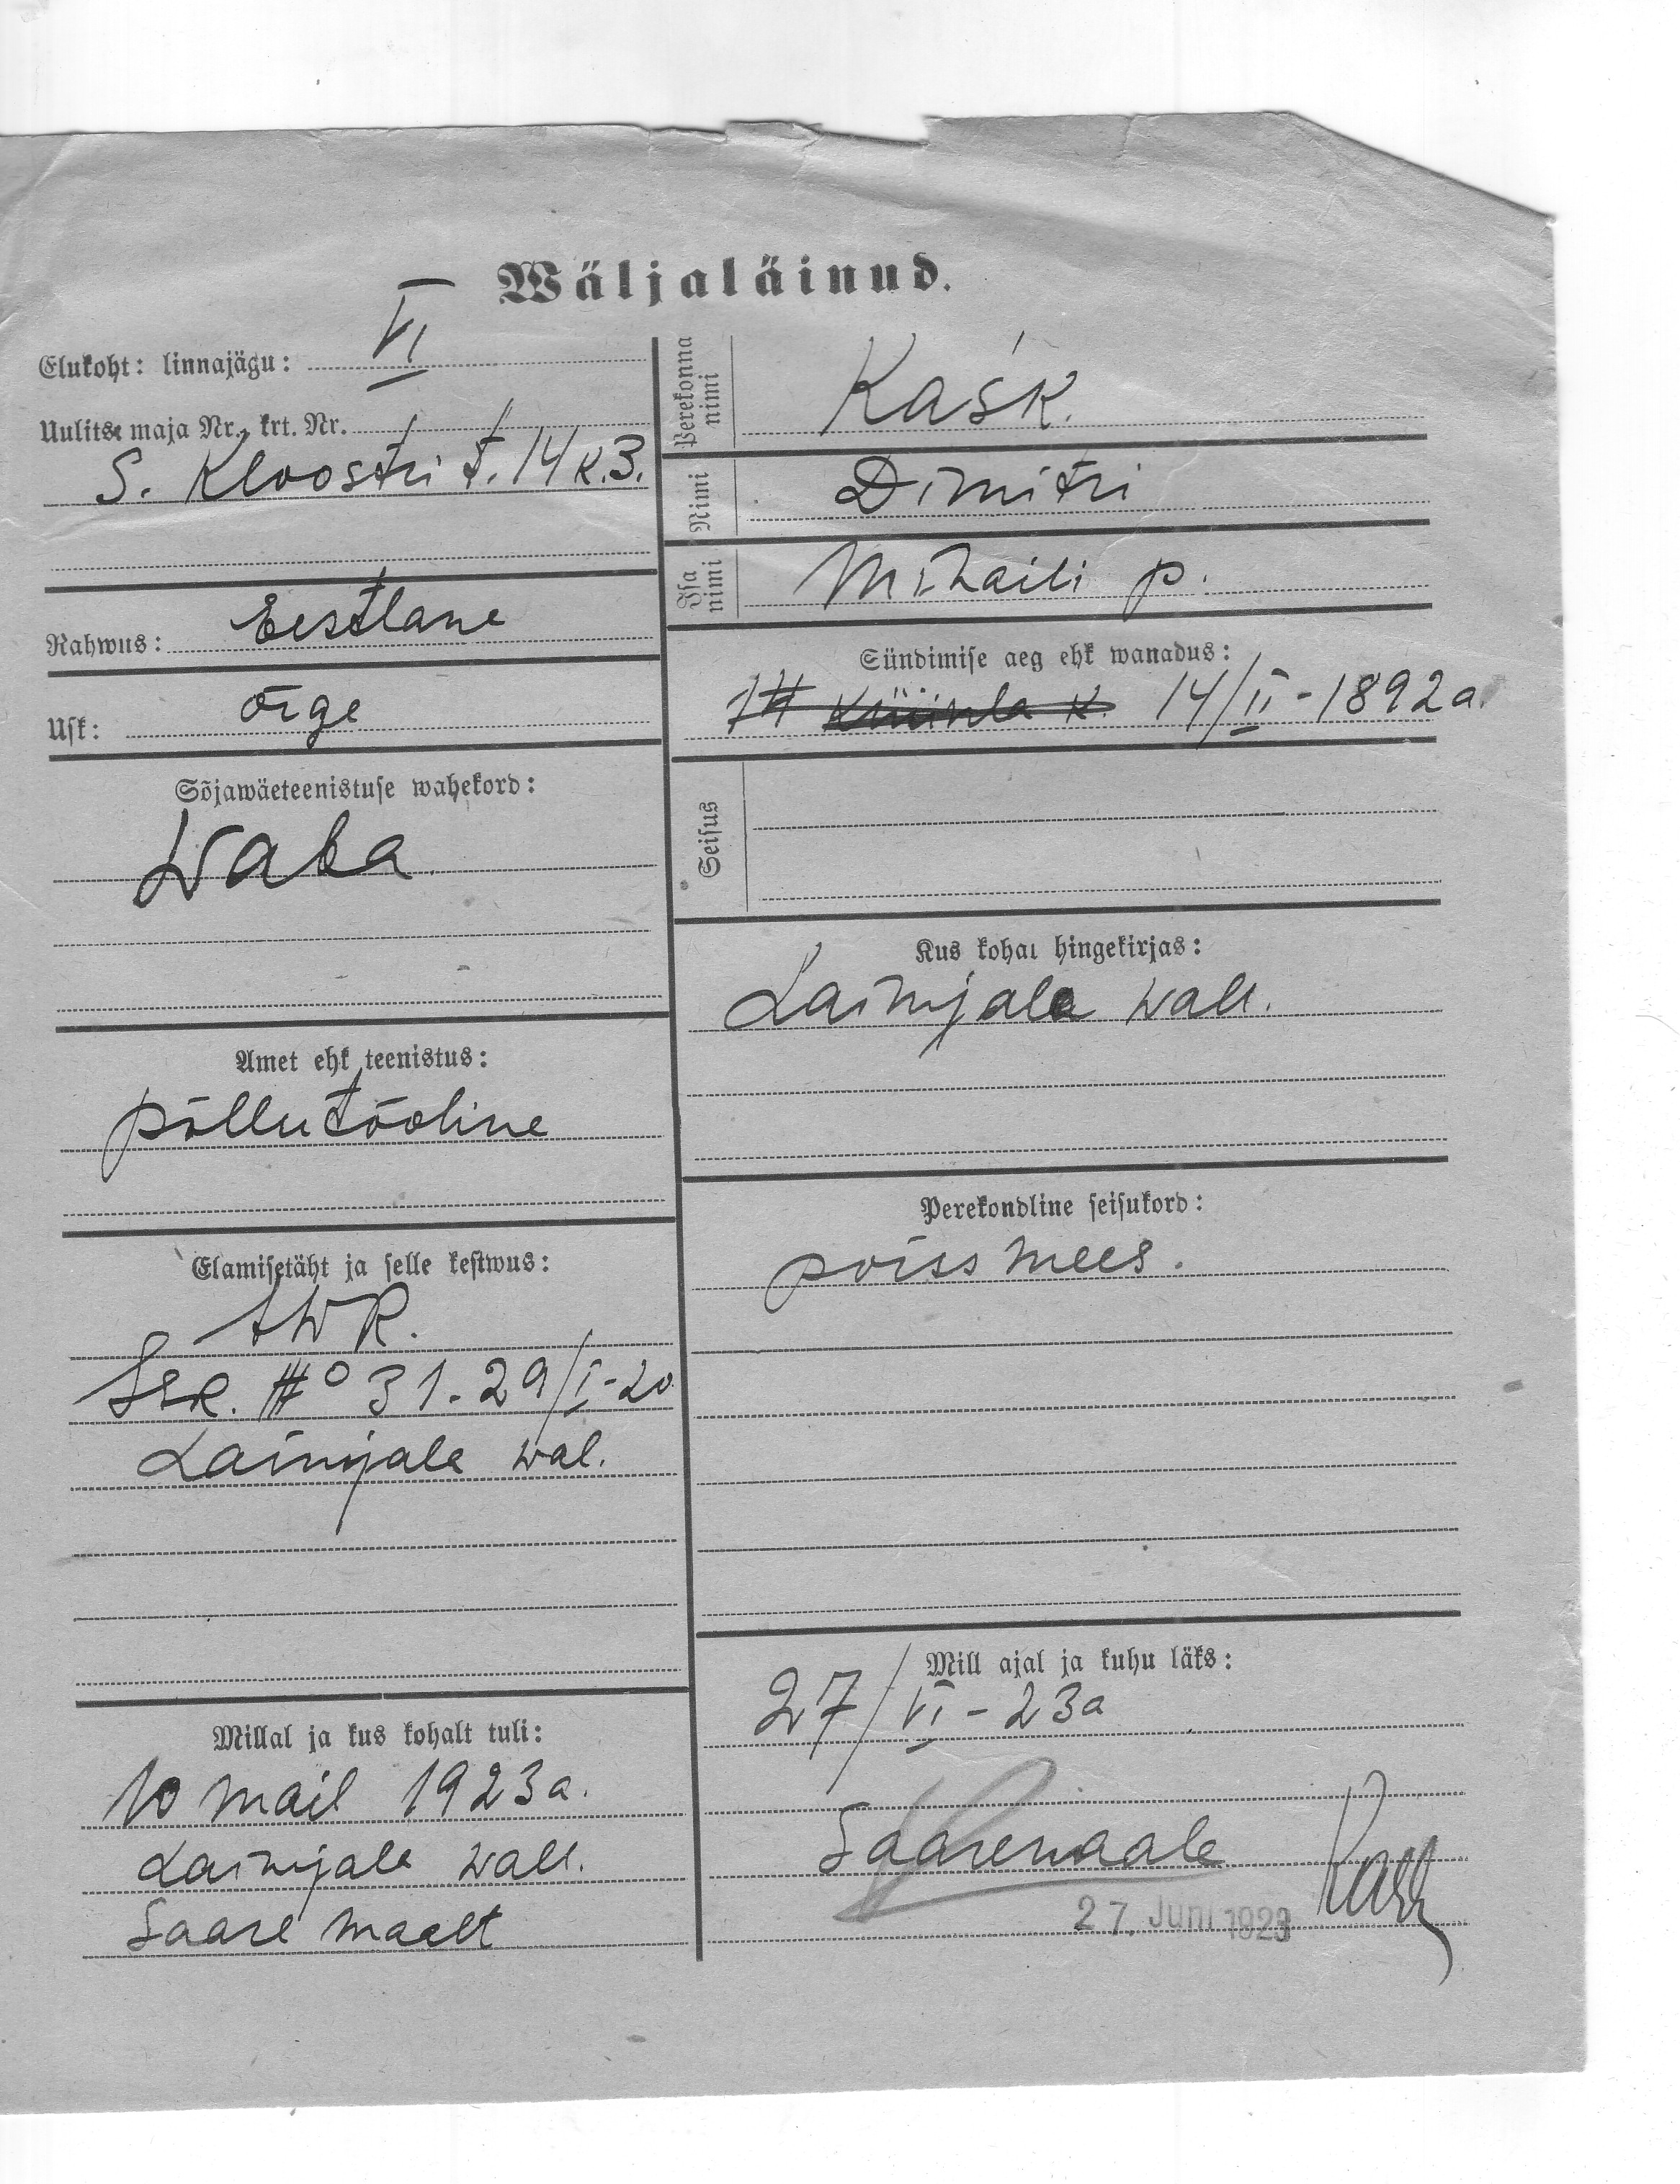 Wäljaläinud.
Elukoht: linnajägu: VI
Uulitse maja Nr., krt. Nr.
S. Kloostri t. 14 k. 3.
Rahwus: Eestlane
Usk: õige
Sõjawäeteenistuse wahekord:
Waba
Amet ehk teenistus:
põllutööline
Elamisetäht ja selle kestwus:
No 31-29/I-20
Laimjala wal.
Millal ja kus kohalt tuli:
10 mail 1923 a.
Laimjala wall.
Saare maalt
Perekonna nimi Kask.
Nimi Dimitri
Isa nimi Mihaili p.
Sündimise aeg ehk wanadus:
14/II-1892 a.
Seisus
Kus kohal hingekirjas:
Laimjala wall.
Perekondline seisukord:
poissmees.
Mill ajal ja kuhu läks:
27/VI-23 a
Saaremaale
27. Juni 1923